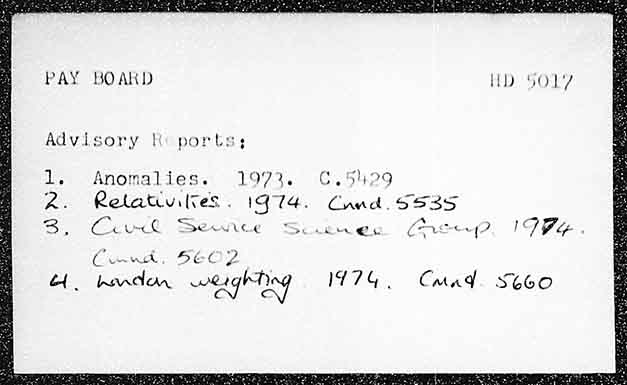 PAY BOARD HD 5017
Advisory Reports:
1. Anomalies. 1973. C.5429
2. Relativities. 1974. Cmnd. 5535
3. Civil Service Science Group. 1974.
Cmnd. 5602
4. London weighting. 1974. Cmnd. 5660